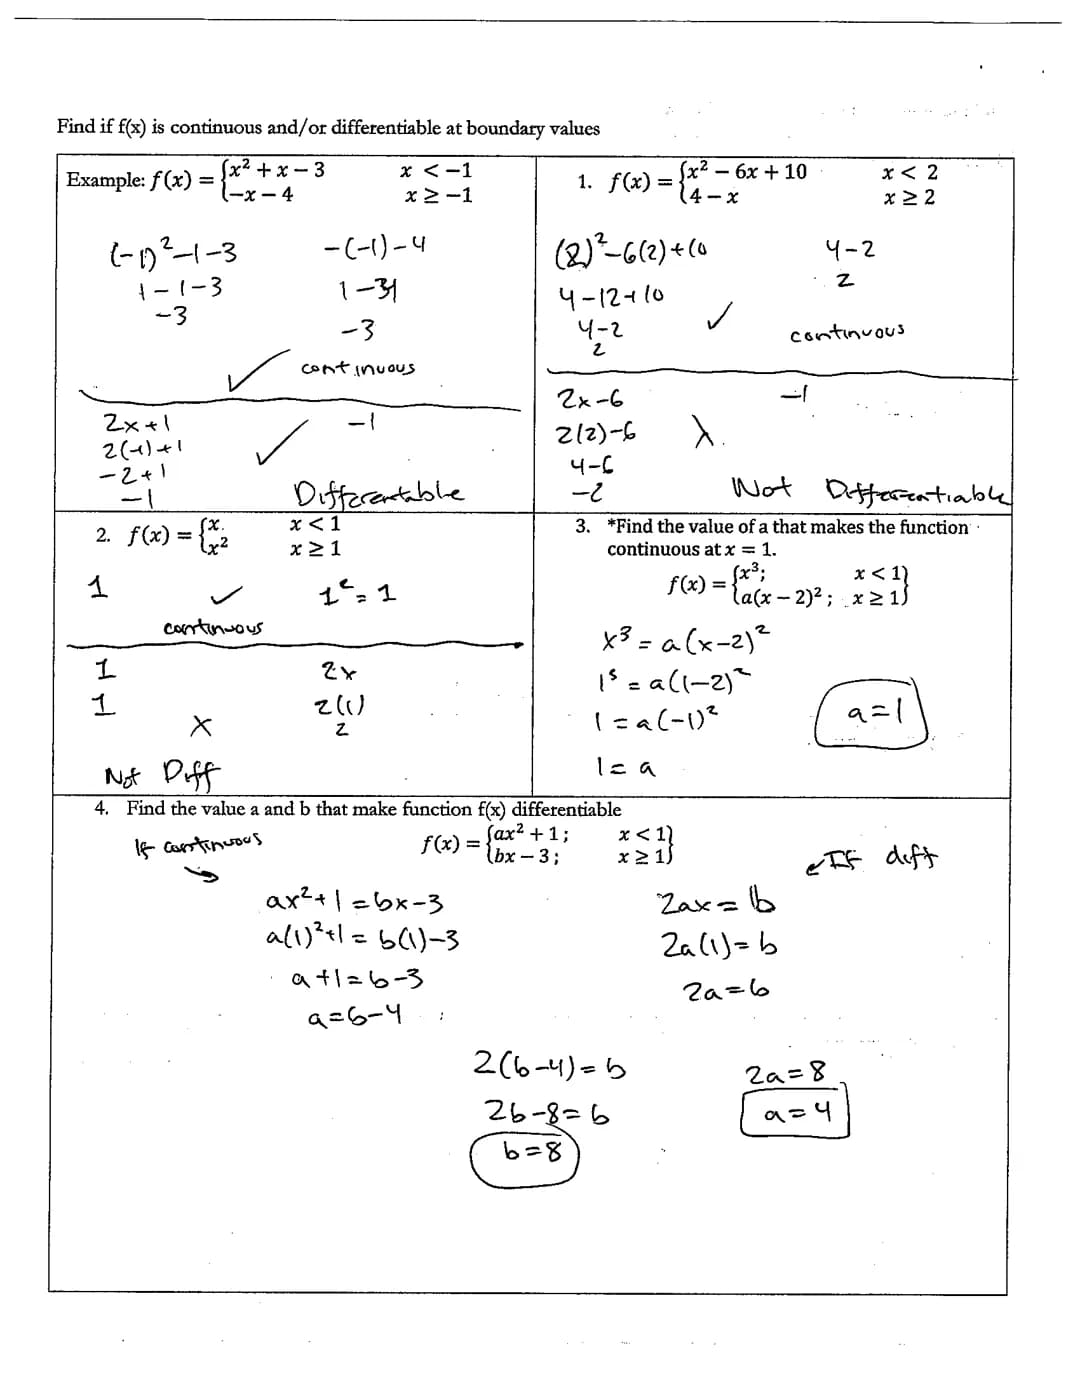 Find if f(x) is continuous and/or differentiable at boundary values
Example: f(x) = {x² + x − 3    x < −1
{−x − 4    x ≥ −1
(-1)²-1-3    -(-1)-4
1-1-3    1-4
-3    -3
✓ continuous
2x+1    -1
2(-1)+1 ✓
-2+1
-1    Differentable
1. f(x) = {x² − 6x + 10    x < 2
{4 − x    x ≥ 2
(2)²-6(2)+10    4-2
4-12+10    2
4-2 ✓ continuous
2
2x-6    -1
2(2)-6 X
4-6
-2    Not Differentiable
2. f(x) = {x    x < 1
{x²    x ≥ 1
1 ✓ 1²=1
continuous
1    2x
1    2(1)
X    2
Not Diff
3. *Find the value of a that makes the function
continuous at x = 1.
f(x) = {x³;    x < 1}
{a(x − 2)²;    x ≥ 1}
x³ = a(x-2)²
1³ = a(1-2)²
1 = a(-1)²    a=1
1 = a
4. Find the value a and b that make function f(x) differentiable
If continuous    f(x) = {ax² + 1;    x < 1}    If diff
{bx − 3;    x ≥ 1}
ax²+1 = bx-3    2ax = b
a(1)²+1 = b(1)-3    2a(1) = b
a+1 = b-3    2a = b
a = b-4
2(b-4) = b    2a = 8
2b-8 = b    a = 4
b = 8